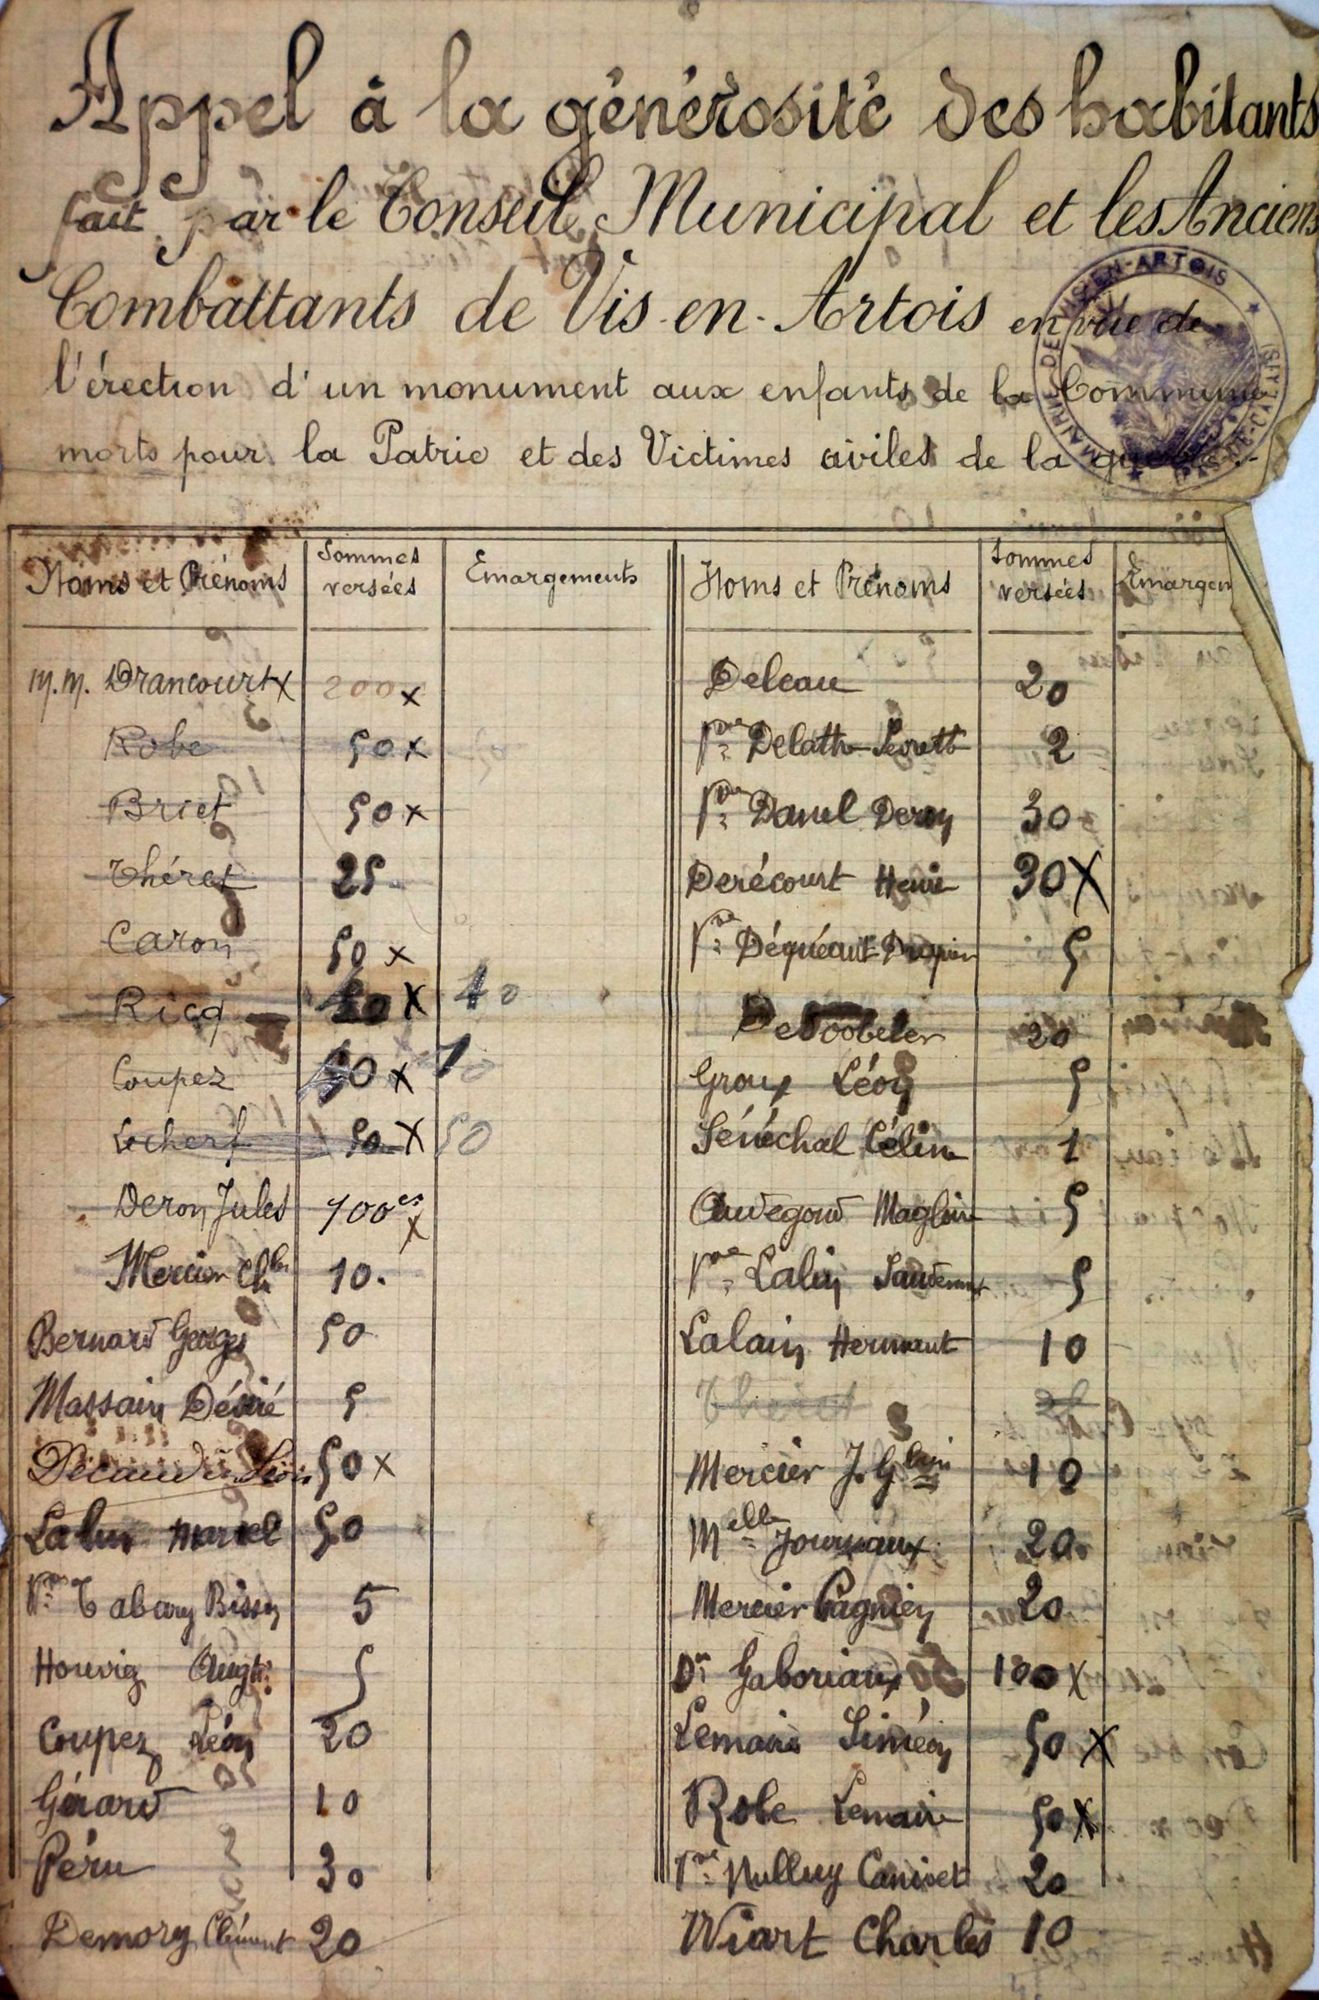 Appel à la générosité des habitants
fait par le Conseil Municipal et les Anciens
Combattants de Vis-en-Artois en vue de
l'érection d'un monument aux enfants de la Commune
morts pour la Patrie et des Victimes civiles de la guerre.-
MAIRIE DE VIS-EN-ARTOIS
PAS-DE-CALAIS
Noms et Prénoms Sommes versées Emargements Noms et Prénoms Sommes versées Emargem
M.M. Drancourt X 200 X Deleau 20
Robe 50 X Vve Delattre 2
Briet 50 X Vve Danel Deron 30
Théret 25 Derécourt Henri 30 X
Caron 50 X Vve Déquéant 5
Ricq X 40 20
Coupez 50 X Groux Léon 5
Lecherf 50 X 50 Sénéchal Céline 1
Deron Jules 100 X Auvegord 5
Mercier Chles 10. Vve Lalin 5
Bernard Georges 50 Lalain Hermant 10
Massain Désiré 5 Théret
Decaudin 50 X Mercier J. 10
Lalin Marcel 50 Melle Journaux 20
Vve Tabary Bisson 5 Mercier Pagnien 20
Houviez Augte 5 Dr Gaboriaux 100 X
Coupez Léon 20 Lemaire Siméon 50 X
Gérard 10 Robe Lemaire 50 X
Péru 30 Vve Nulluy Canivet 20
Demory Clément 20 Wiart Charles 10